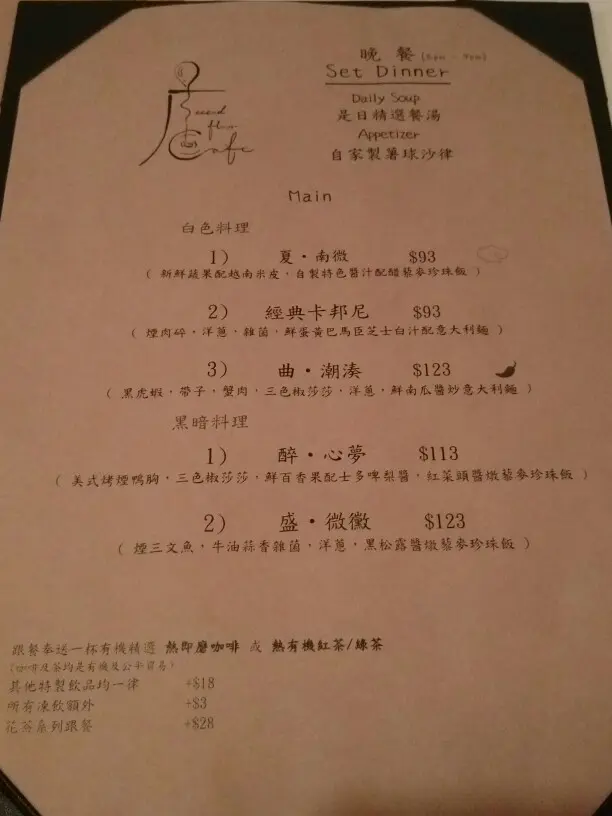 Second
floor
Cafe
晚餐
Set Dinner
Daily Soup
是日精選餐湯
Appetizer
自家製薯球沙律
Main
白色料理
1) 夏·南微 $93
(新鮮蔬果配越南米皮,自製特色醬汁配醋藜麥珍珠飯)
2) 經典卡邦尼 $93
(煙肉碎,洋蔥,雜菌,鮮蛋黃巴馬臣芝士白汁配意大利麵)
3) 曲·潮湊 $123
(黑虎蝦,帶子,蟹肉,三色椒莎莎,洋蔥,鮮南瓜醬炒意大利麵)
黑暗料理
1) 醉·心夢 $113
(美式烤煙鴨胸,三色椒莎莎,鮮百香果配士多啤梨醬,紅菜頭醬燉藜麥珍珠飯)
2) 盛·微黴 $123
(煙三文魚,牛油蒜香雜菌,洋蔥,黑松露醬燉藜麥珍珠飯)
跟餐奉送一杯有機精選 熱即磨咖啡 或 熱有機紅茶/綠茶
(咖啡及茶均是有機及公平貿易)
其他特製飲品均一律 +$18
所有凍飲額外 +$3
花茶系列跟餐 +$28